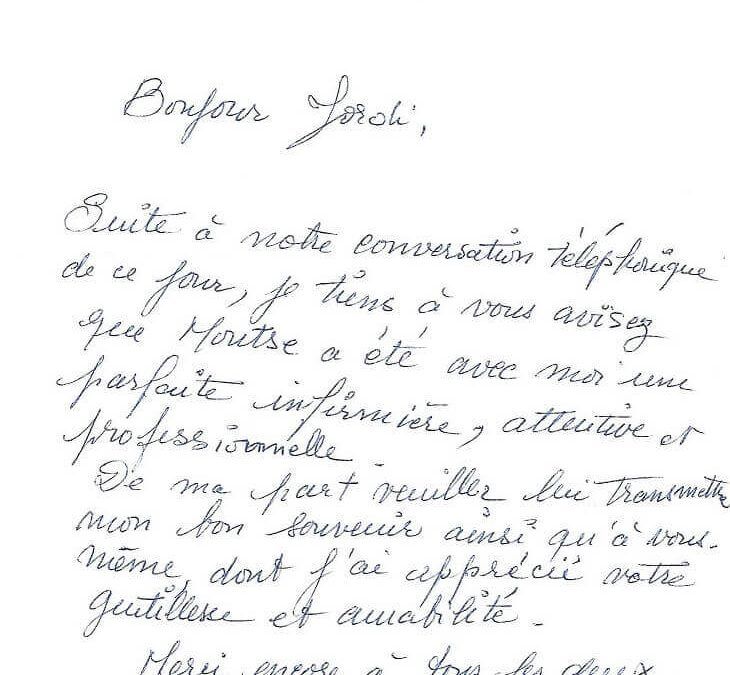 Bonjour Jordi,
Suite à notre conversation téléphonique
de ce jour, je tiens à vous avisez
que Montse a été avec moi une
parfaite infirmière, attentive et
professionnelle.
De ma part veuillez lui transmettre
mon bon souvenir ainsi qu'à vous-
même, dont j'ai apprécié votre
gentillesse et amabilité.
Merci encore à tous les deux